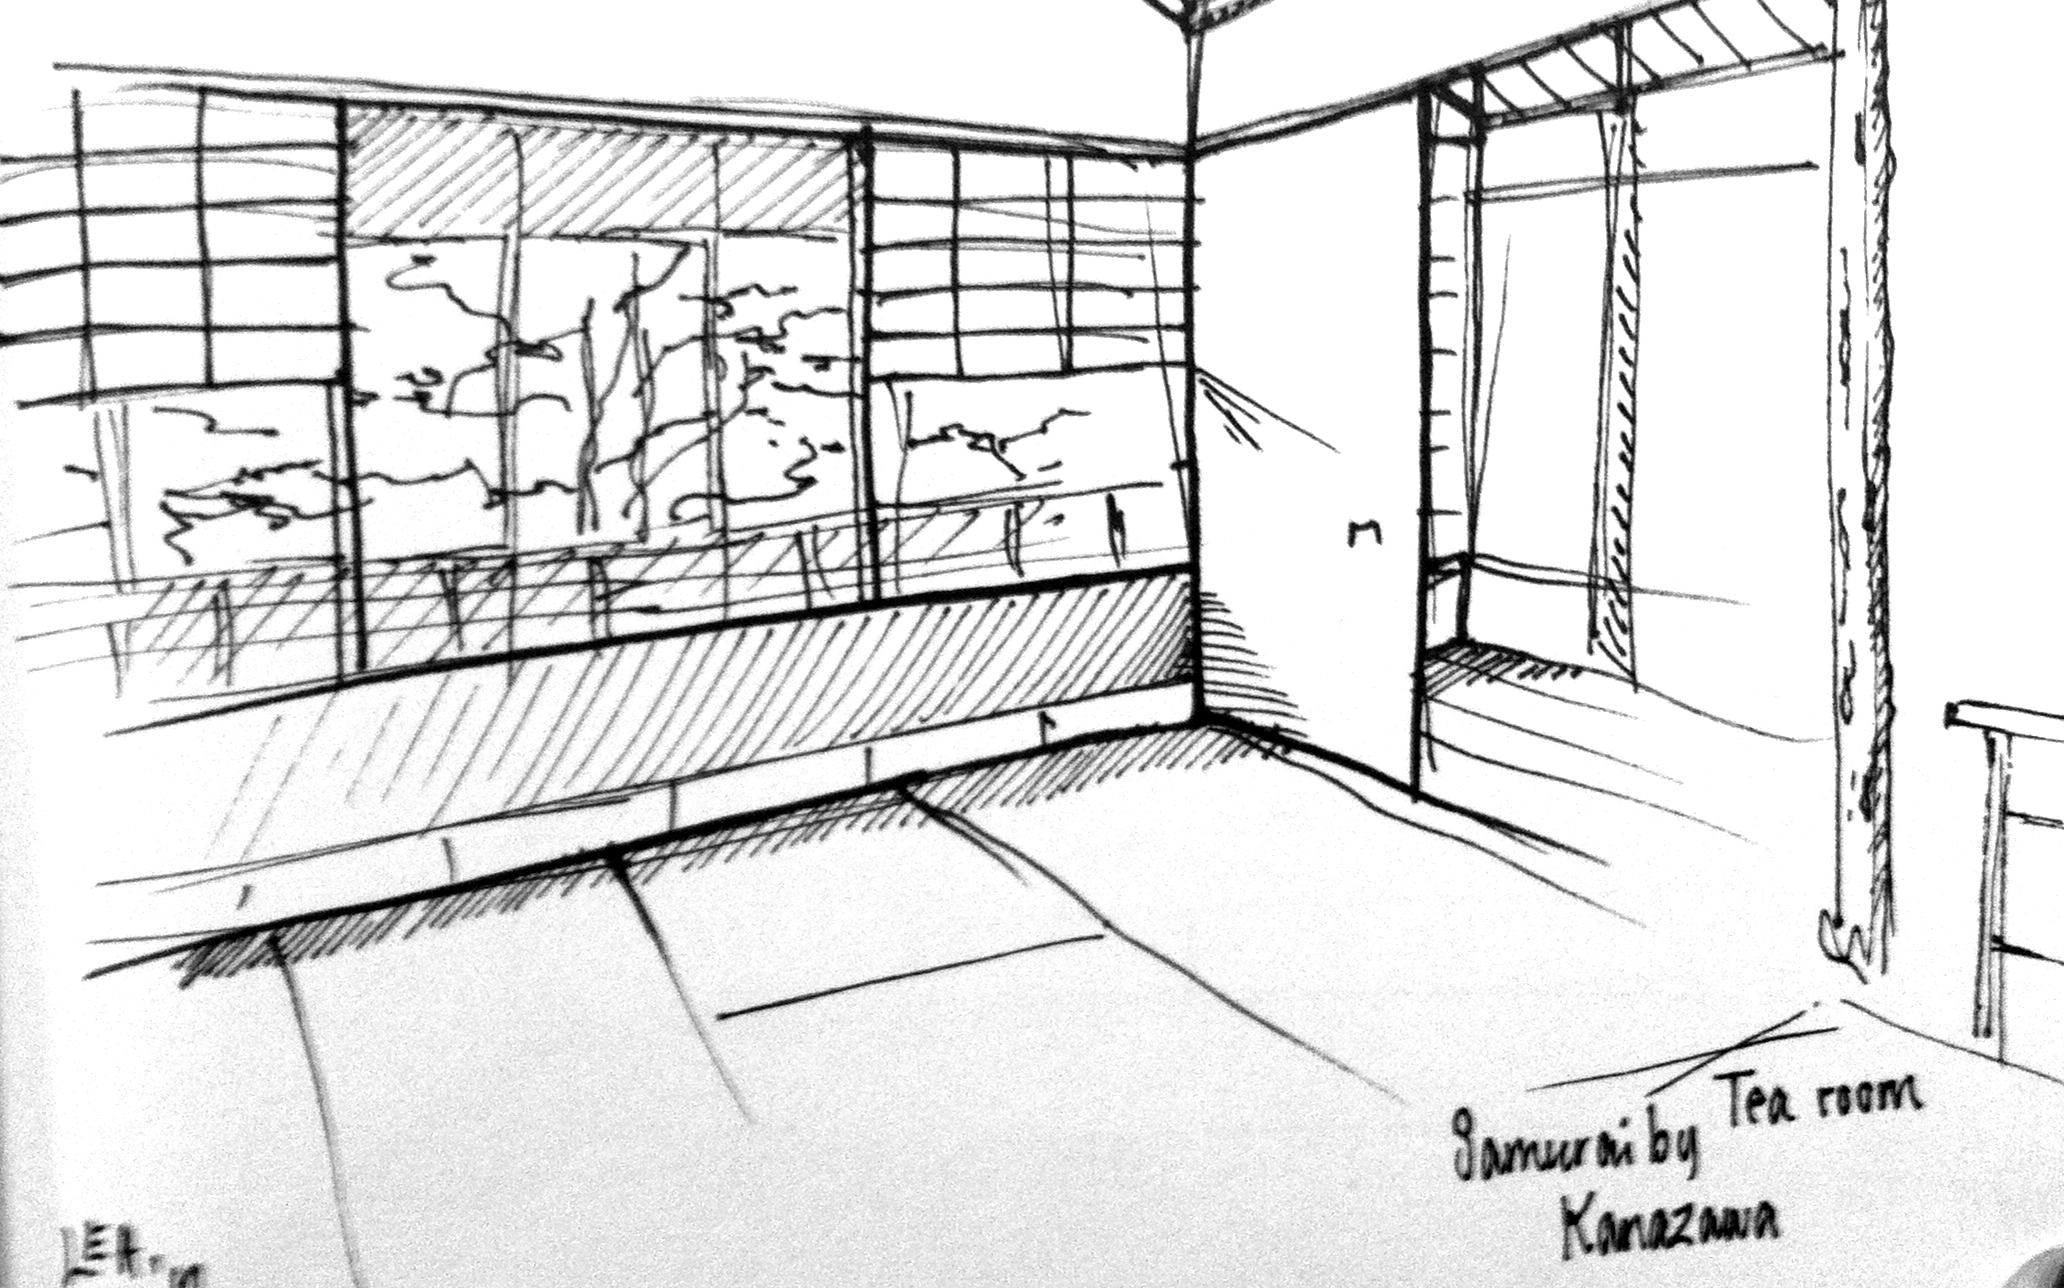 Tea room
Samurai by
Kanazawa